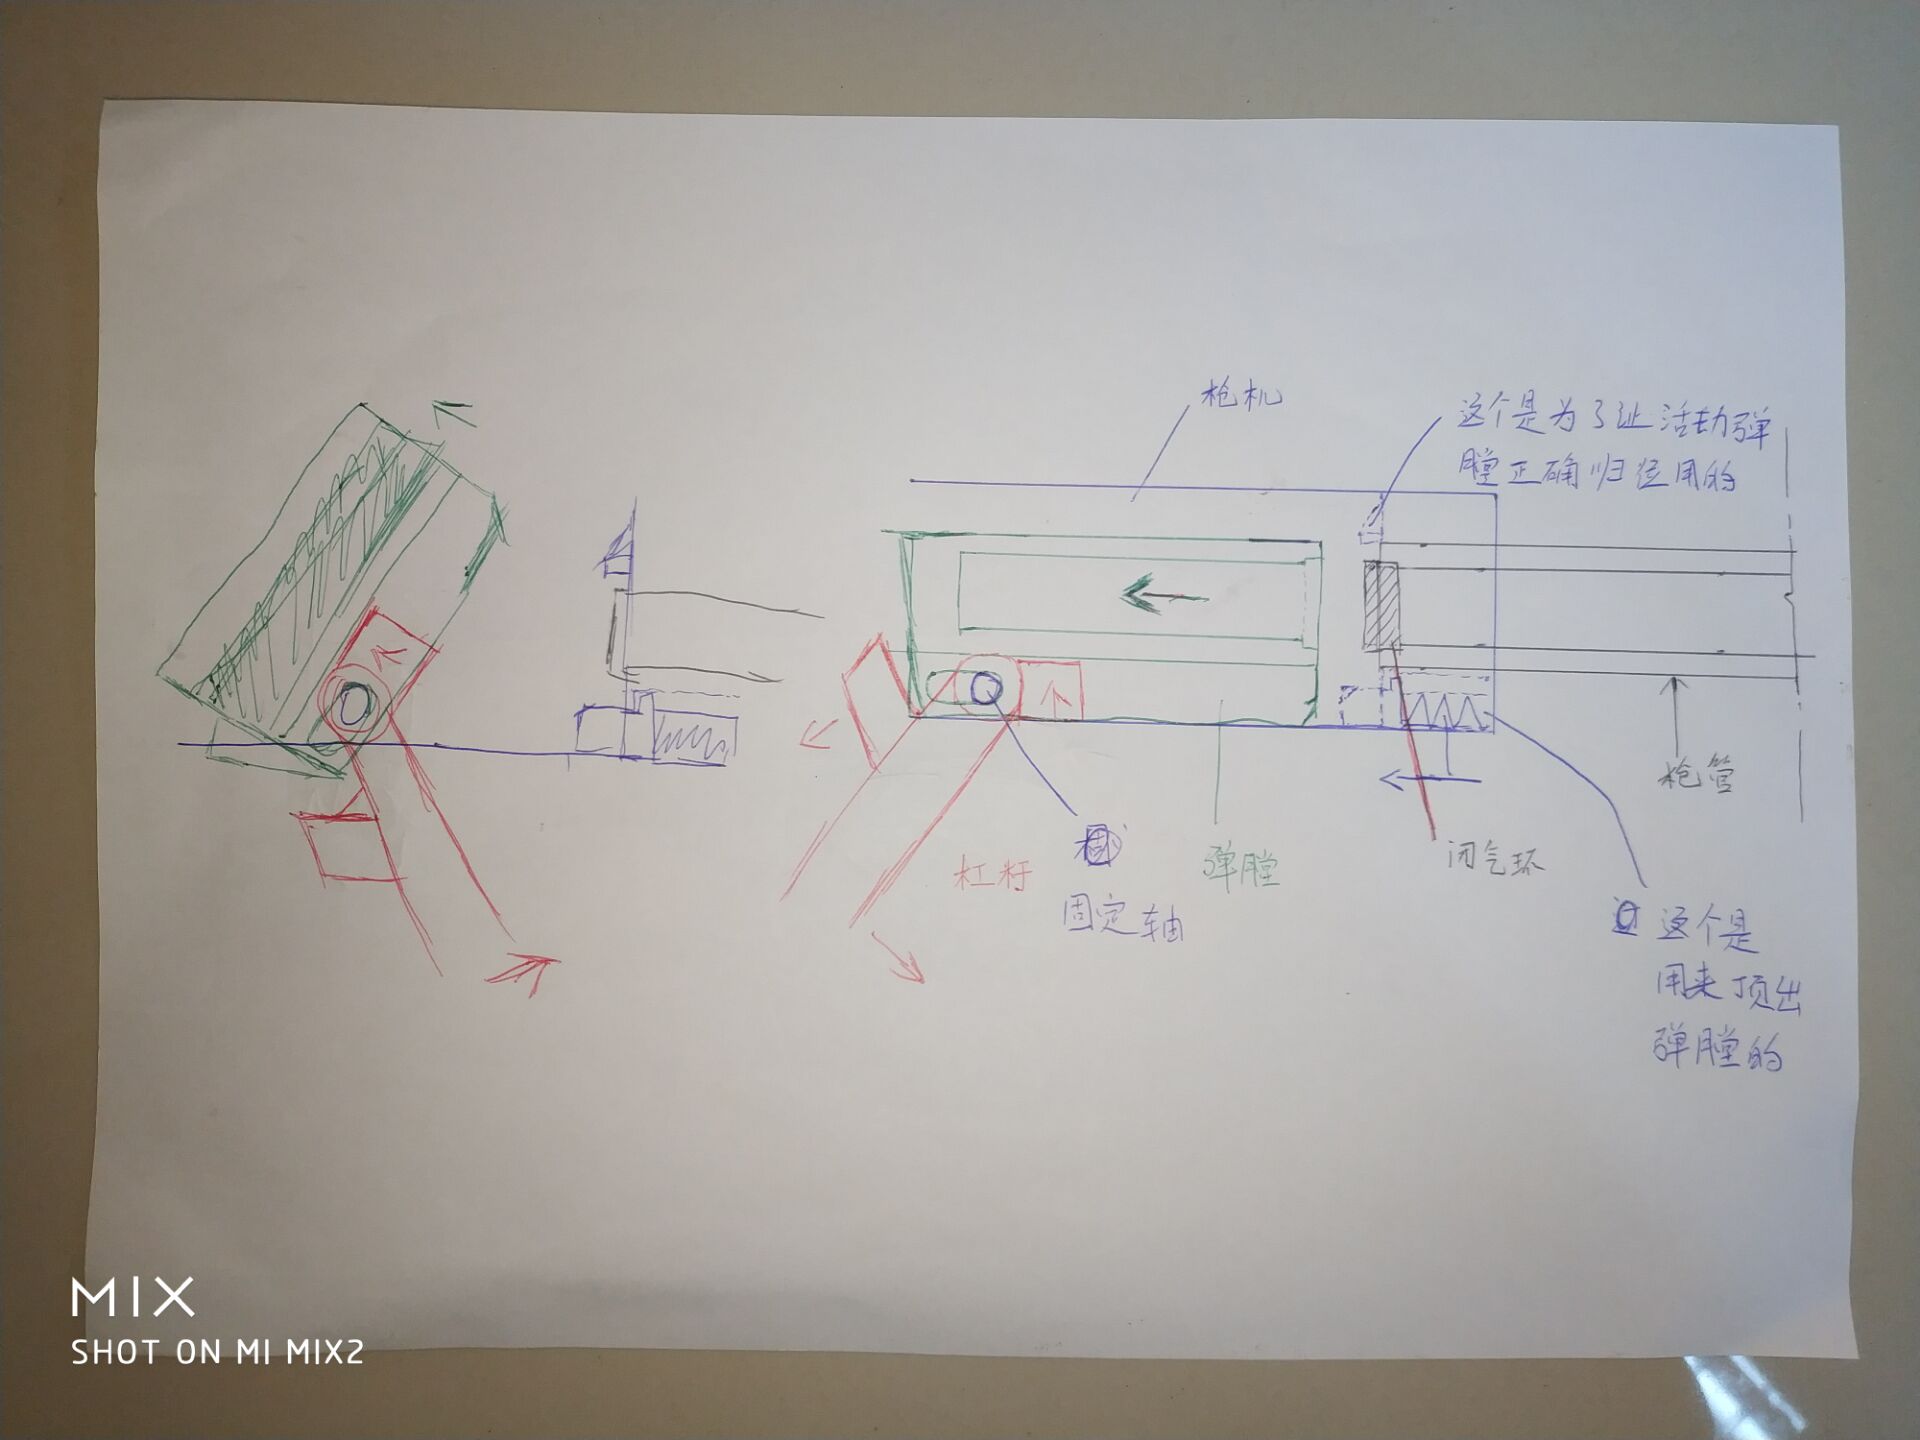 枪机
这个是为了让活动弹
膛正确归位用的
枪管
固定轴
杠杆
弹膛
闭气环
这个是
用来顶出
弹膛的
MIX
SHOT ON MI MIX2